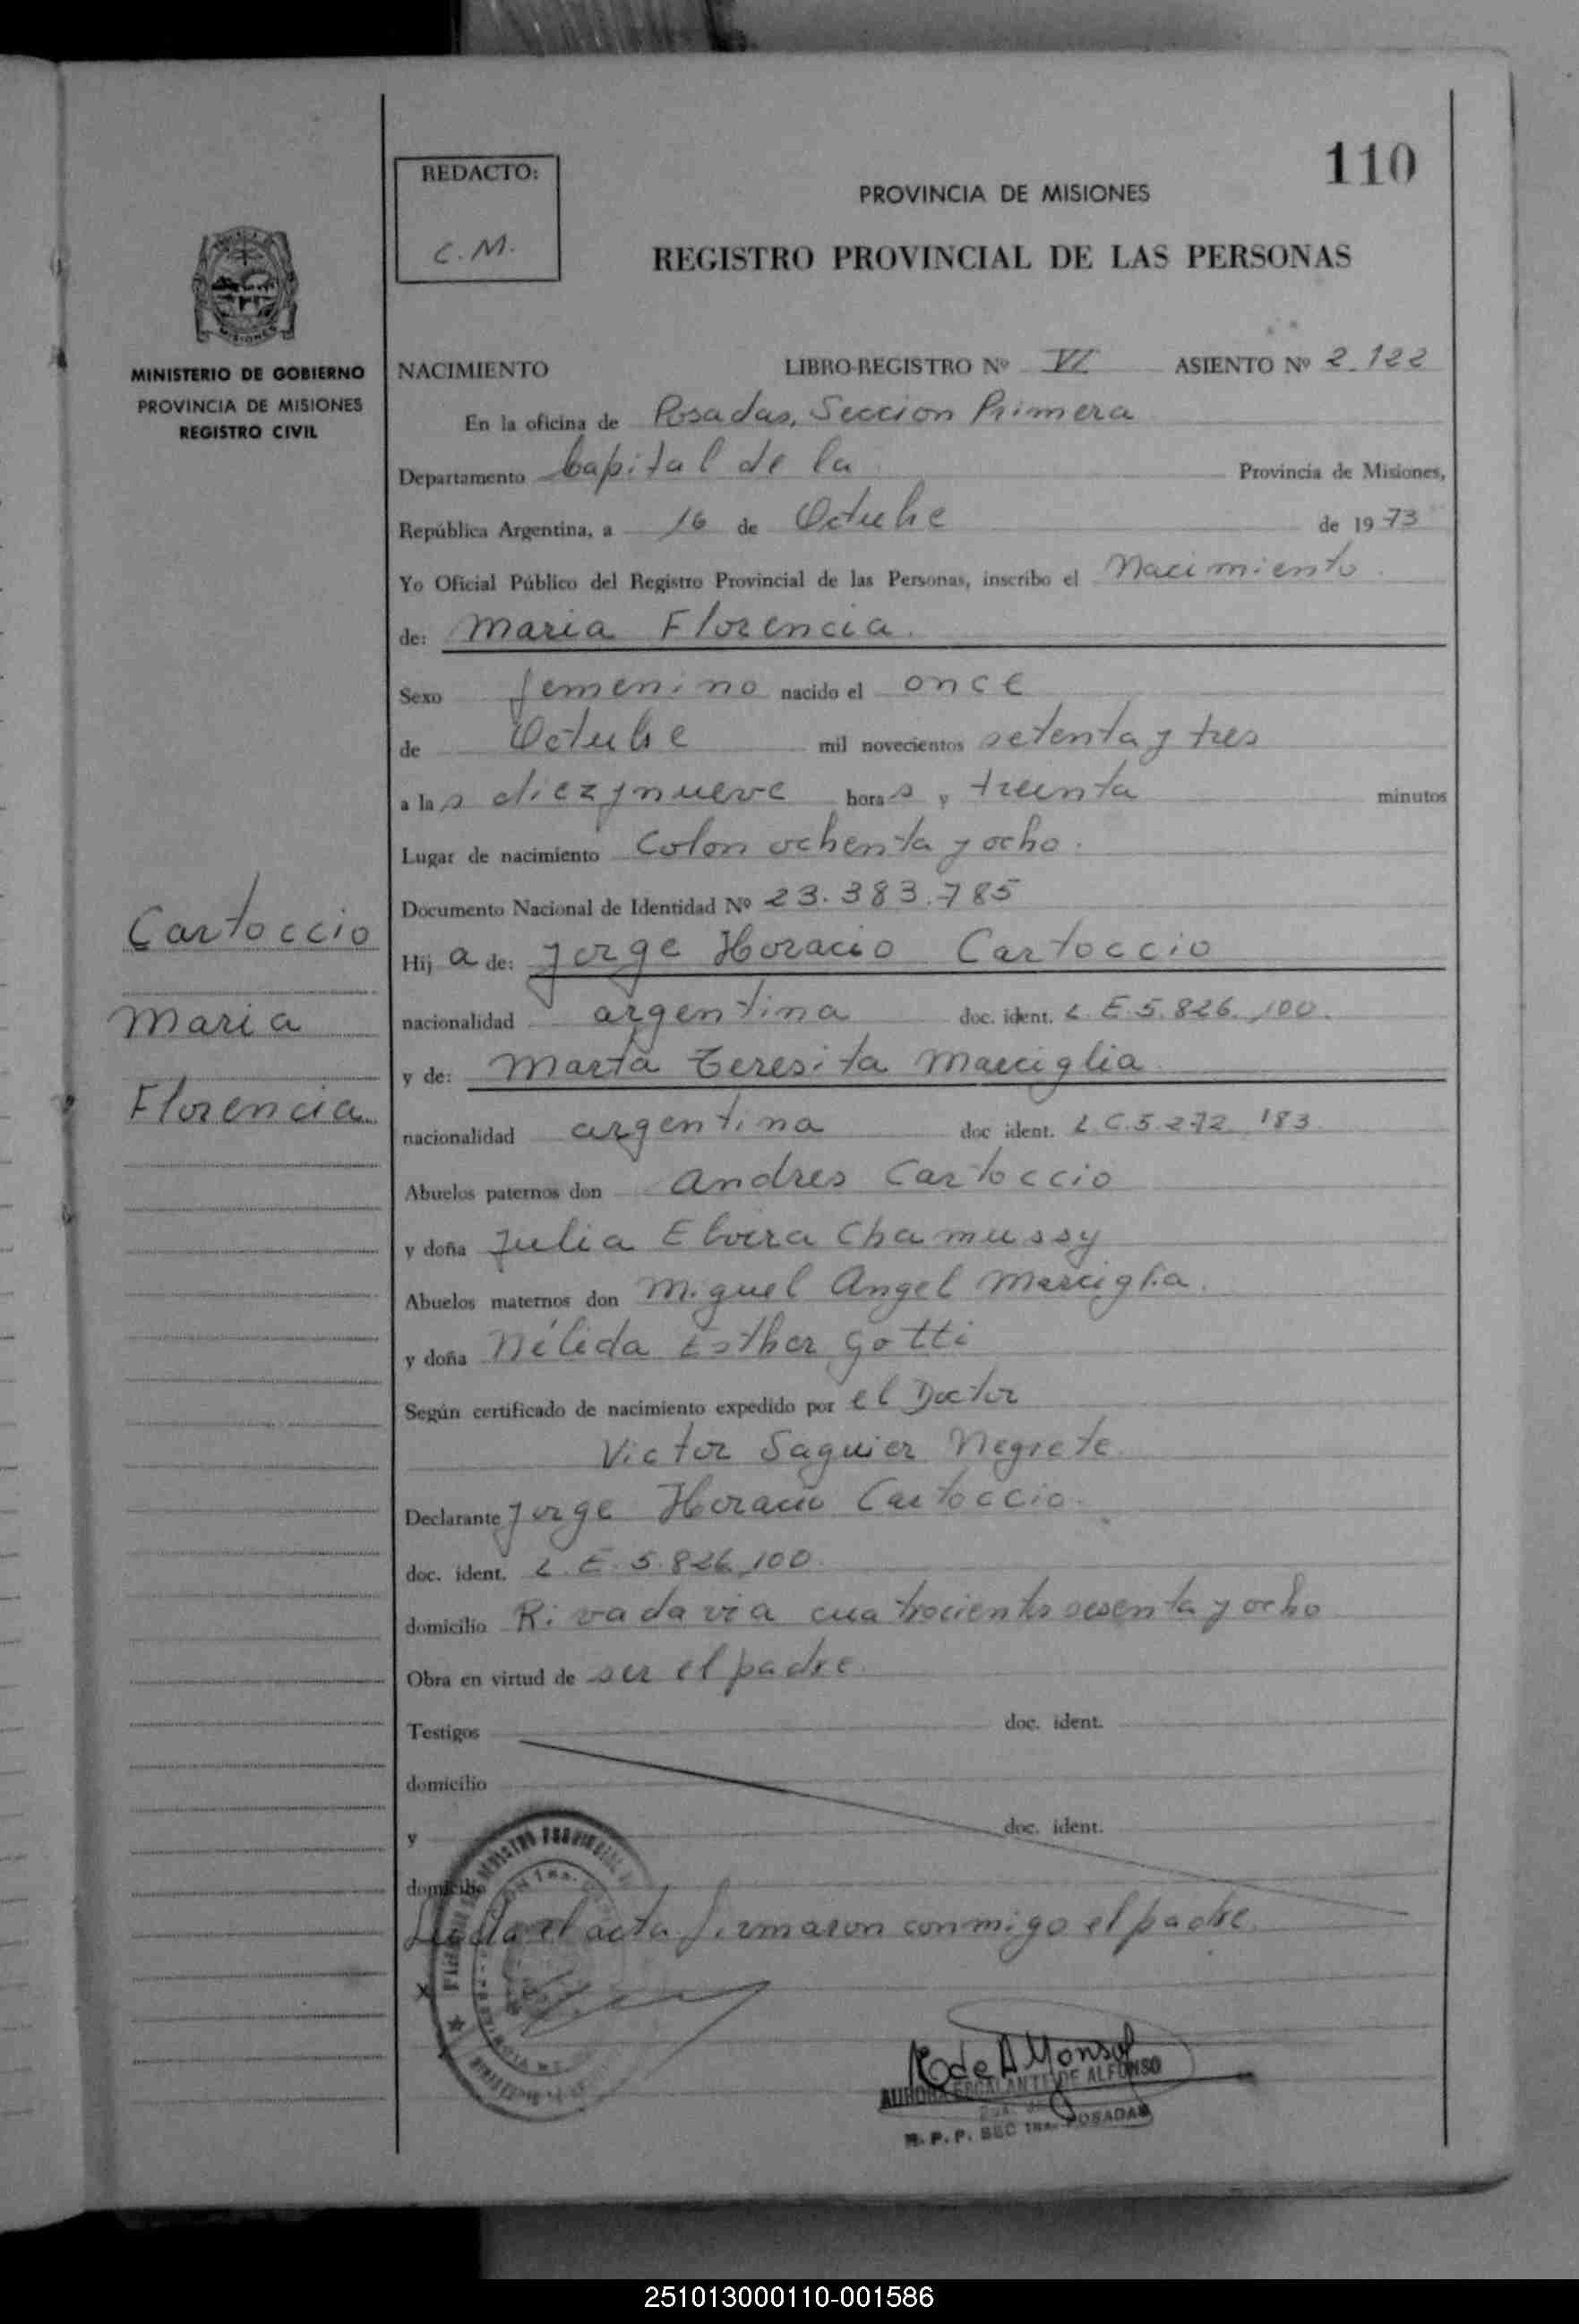 110
REDACTO:
C. M.
PROVINCIA DE MISIONES
REGISTRO PROVINCIAL DE LAS PERSONAS
MINISTERIO DE GOBIERNO
PROVINCIA DE MISIONES
REGISTRO CIVIL
NACIMIENTO LIBRO-REGISTRO Nº VI ASIENTO Nº 2.122
En la oficina de Posadas, Seccion Primera
Departamento Capital de la Provincia de Misiones,
República Argentina, a 16 de Octubre de 1973
Yo Oficial Público del Registro Provincial de las Personas, inscribo el Nacimiento
de: Maria Florencia.
Sexo femenino nacido el once
de Octubre mil novecientos setenta y tres
a las diezynueve horas y treinta minutos
Lugar de nacimiento Colon ochenta y ocho.
Documento Nacional de Identidad Nº 23.383.785
Cartoccio
Maria
Florencia
Hija de: Jorge Horacio Cartoccio
nacionalidad argentina doc. ident. L.E.5.826.100.
y de: Marta Teresita Marciglia
nacionalidad argentina doc ident. L.C.5.272.183
Abuelos paternos don Andres Cartoccio
y doña Julia Elvira Chamussy
Abuelos maternos don Miguel Angel Marciglia.
y doña Nélida Esther Gotti
Según certificado de nacimiento expedido por el Doctor
Victor Saguier Negrete
Declarante Jorge Horacio Cartoccio.
doc. ident. L.E.5.826.100.
domicilio Rivadavia cuatrocientos sesenta y ocho
Obra en virtud de ser el padre.
Testigos doc. ident.
domicilio
y doc. ident.
domicilio
Leida el acta firmaron conmigo el padre.
X
AURORA ESCALANTE DE ALFONSO
R. P. P. SEC 1RA. POSADAS
251013000110-001586